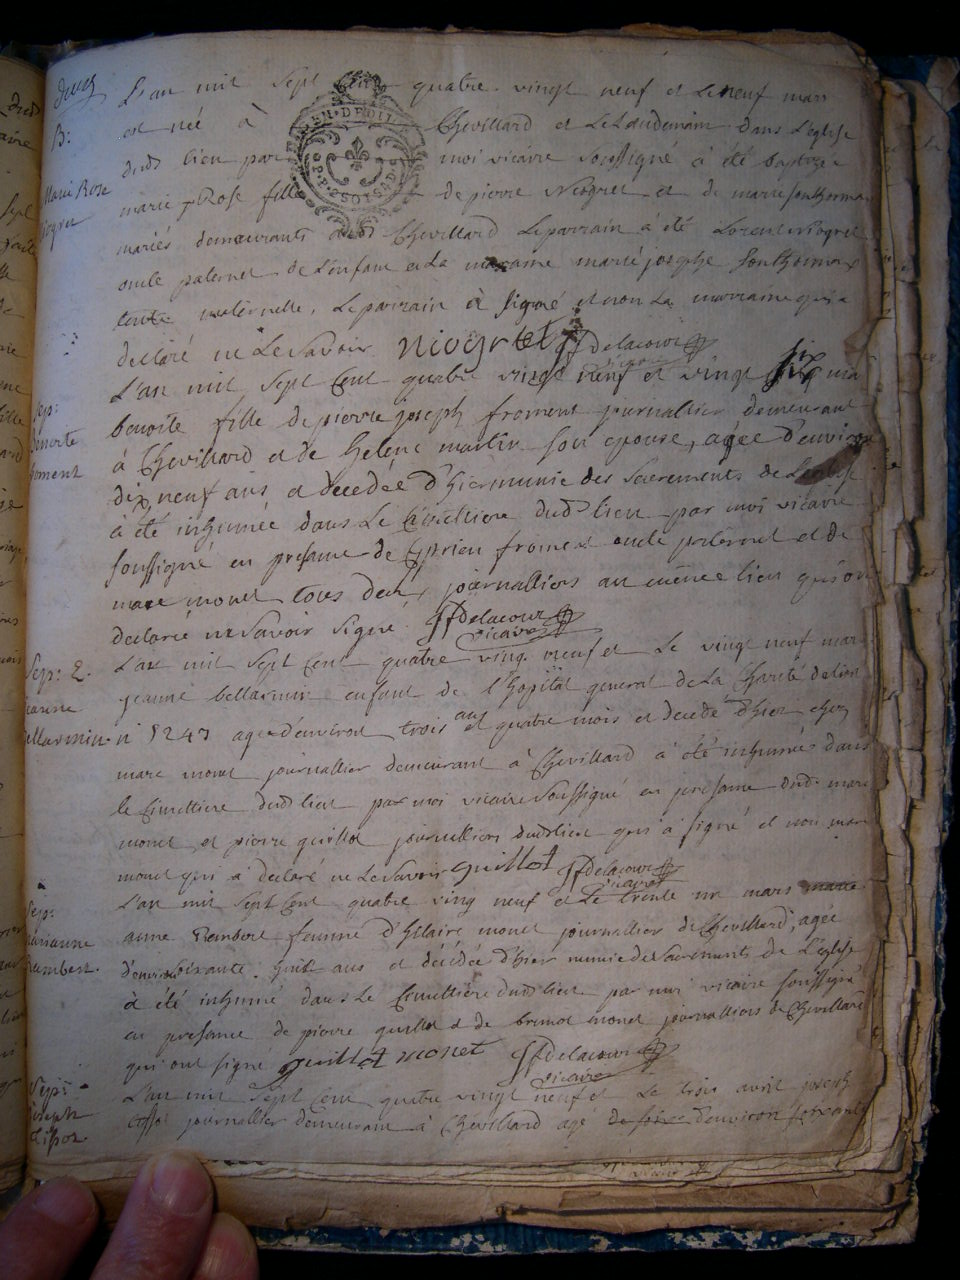 B:
Marie Rose
Niogret
L'an mil sept cent quatre vingt neuf et le neuf mars
est née à Chevillard et le Lendemain dans L'eglise
dud lieu par moi vicaire soussigné à été baptizée
marie Rose fille de pierre Niogret et de marie
mariés demeurants Chevillard Le parrain à été Lorent Niogret
oncle paternel de L'enfant et La maraine marie josephe
tente maternelle, Le parrain à signé et non La marraine qui a
declaré ne Le savoir niogret Delacour
vicaire
GEN. DE DIJON
P.P. 2 SOLS 8 D.
Sep:
benoite
froment
L'an mil sept Cent quatre vingt neuf et vingt six mars
benoite fille de pierre joseph froment journallier demeurant
à Chevillard et de helene martin son epouse, agée d'environ
dix neuf ans et decedée d'hier munie des sacrements de L'eglise
à été inhumée dans Le Cimettiere dud lieu par moi vicaire
soussigné en presance de Cyprien froment oncle paternel et de
marc monet tous deux journalliers au même lieu qui on
declaré ne savoir signé Delacour
vicaire
Sep: 2.
jeanne
bellarmin
L'an mil sept Cent quatre ving neuf et Le vingt neuf mars
jeanne bellarmin enfant de l'hopital general de La Charité de lion
n 1247 agé d'environ trois ans et quatre mois et decedé d'hier chez
marc monet journallier demeurant à Chevillard à été inhumé dans
le Cimettiere dud lieu par moi vicaire soussigné en presance dud. marc
monet et pierre guillot journalliers dud lieu qui à signé et non marc
monet qui à declaré ne Le savoir guillot Delacour
vicaire
Sep:
marianne
humbert.
L'an mil sept Cent quatre ving neuf et Le trente un mars marie
anne humbert femme d'hilaire monet journallier de Chevillard, agée
d'environ soixante huit ans et décédée d'hier munie des sacrements de L'eglise
à été inhumé dans Le Cimettiere dud lieu par moi vicaire soussigné
en presance de pierre guillot & de benoit monet journalliers de Chevillard
qui ont signé guillot monet Delacour
vicaire
Sep:
joseph
tissot.
L'an mil sept Cent quatre vingt neuf et Le trois avril joseph
tissot journallier demeurant à Chevillard agé de d'environ soixante